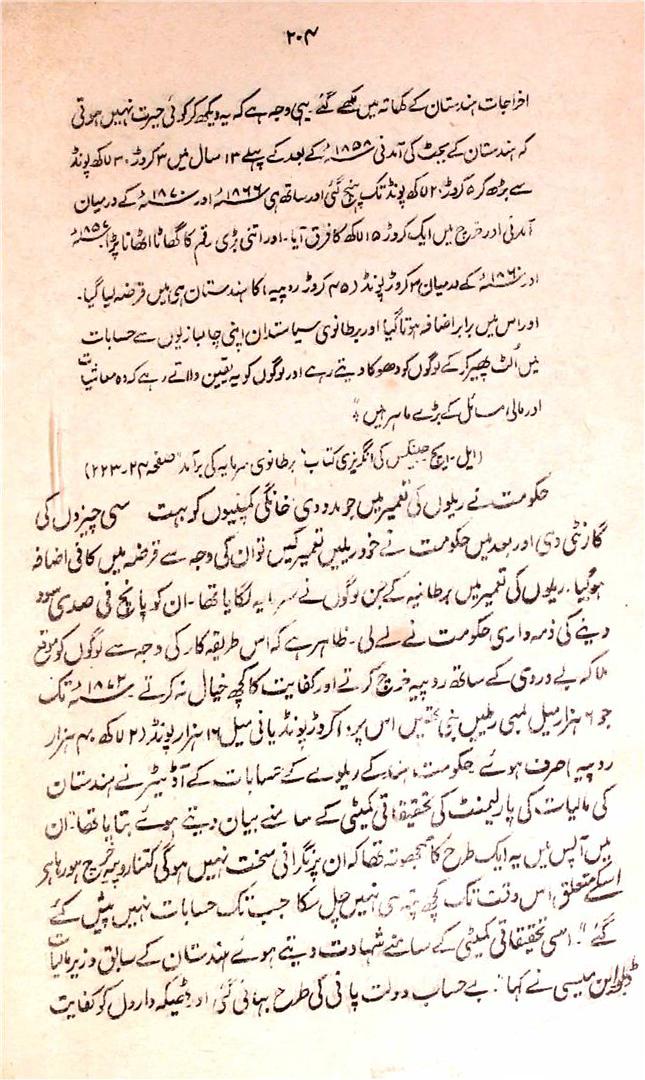 ۲۰۴
اخراجات ہندستان کے کھاتہ میں لکھے گئے۔ یہی وجہ ہے کہ یہ دیکھ کر کوئی حیرت نہیں ہوتی
کہ ہندستان کے بجٹ کی آمدنی ۱۸۵۸ء کے بعد کے پہلے ۱۳ سال میں ۳ کروڑ ۳۰ لاکھ پونڈ
سے بڑھ کر ۵ کروڑ ۲۰ لاکھ پونڈ تک پہنچ گئی اور ساتھ ہی ۱۸۶۶ء اور ۱۸۷۰ء کے درمیان
آمدنی اور خرچ میں ایک کروڑ ۱۵ لاکھ کا فرق آیا۔ اور اتنی بڑی رقم کا گھاٹا اٹھانا پڑا ۱۸۵۷ء
اور ۱۸۶۰ء کے درمیان ۳ کروڑ پونڈ (۴۵ کروڑ روپیہ) کا ہندستان ہی میں قرضہ لیا گیا۔
اور اس میں برابر اضافہ ہوتا گیا اور برطانوی سیاستدان اپنی چالبازیوں سے حسابات
میں اُلٹ پھیر کر کے لوگوں کو دھوکا دیتے رہے اور لوگوں کو یہ یقین دلاتے رہے کہ وہ معاشیات
اور مالی مسائل کے بڑے ماہر ہیں"
(ایل۔ ایچ جینکس کی انگریزی کتاب "برطانوی سرمایہ کی برآمد" صفحہ ۲۴-۲۲۳)
حکومت نے ریلوں کی تعمیر میں جو مدد دی خانگی کمپنیوں کو بہت سی چیزوں کی
گارنٹی دی اور بعد میں حکومت نے خود ریلیں تعمیر کیں تو ان کی وجہ سے قرضہ میں کافی اضافہ
ہوگیا۔ ریلوں کی تعمیر میں برطانیہ کے جن لوگوں نے سرمایہ لگایا تھا۔ ان کو پانچ فی صدی سود
دینے کی ذمہ داری حکومت نے لے لی۔ ظاہر ہے کہ اس طریقہ کار کی وجہ سے لوگوں کو موقع
ملا کہ بے دردی کے ساتھ روپیہ خرچ کرتے اور کفایت کا کچھ خیال نہ کرتے ۱۸۷۲ء تک
جو ۶ ہزار میل لمبی ریلیں بنی تھیں اس پر ۱۰ کروڑ پونڈ یا فی میل ۱۶ ہزار پونڈ (۲ لاکھ ۴۰ ہزار
روپیہ) صرف ہوئے حکومت ہند کے ریلوے کے حسابات کے آڈیٹر نے ہندستان
کی مالیات کی پارلیمنٹ کی تحقیقاتی کمیٹی کے سامنے بیان دیتے ہوئے بتایا تھا "ان
میں آپس میں یہ ایک طرح کا سمجھوتہ تھا کہ ان پر نگرانی سخت نہیں ہوگی کتنا روپیہ خرچ ہو رہا ہے
اسکے متعلق اس وقت تک کچھ پتہ ہی نہیں چل سکا جب تک حسابات نہیں پیش کئے
گئے"۔ اسی تحقیقاتی کمیٹی کے سامنے شہادت دیتے ہوئے ہندستان کے سابق وزیر مالیات
ڈبلو این میسی نے کہا "بے حساب دولت پانی کی طرح بہائی گئی اور ٹھیکہ داروں کو کفایت